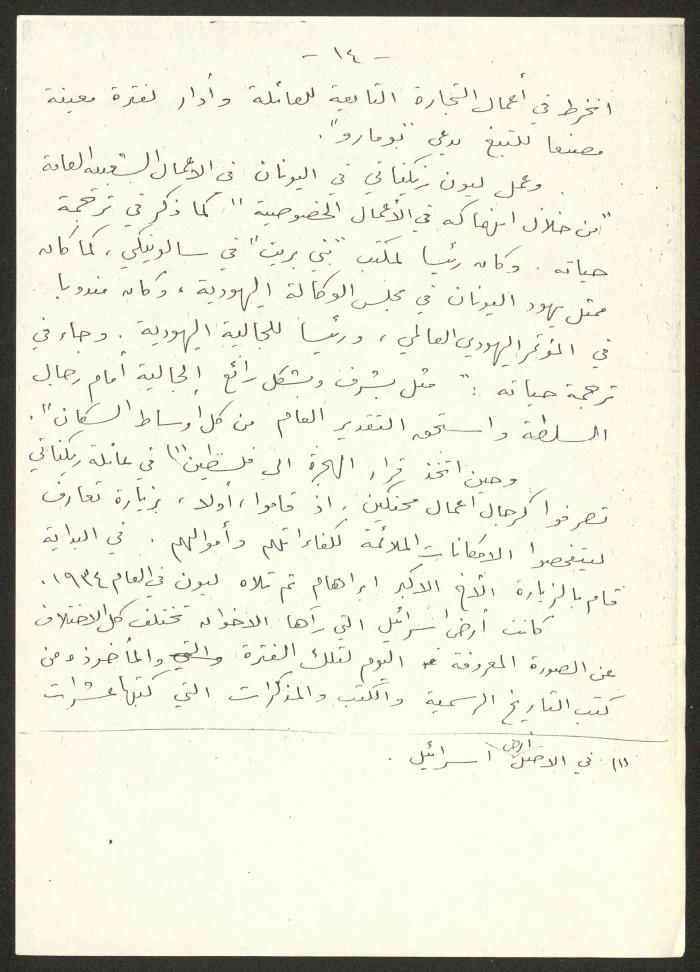 - ١٤ -
انخرط في أعمال التجارة التابعة للعائلة وأدار لفترة معينة
مصنعا للتبغ يدعى "بومارو".
وعمل ليون ركناتي في اليونان في الاعمال الشعبية العامة
"من خلال انهماكه في الأعمال الخصوصية" كما ذكر في ترجمة
حياته. وكان رئيسا لمكتب "بني بريت" في سالونيكي، كما كان
ممثل يهود اليونان في مجلس الوكالة اليهودية، وكان مندوبا
في المؤتمر اليهودي العالمي، ورئيسا للجالية اليهودية. وجاء في
ترجمة حياته: "مثل بشرف وبشكل رائع الجالية أمام رجال
السلطة واستحق التقدير العام من كل أوساط السكان".
وحين اتخذ قرار الهجرة الى فلسطين (١) في عائلة ريكناتي
تصرفوا كرجال اعمال محنكين، اذ قاموا، أولا، بزيارة تعارف
ليتفحصوا الامكانات الملائمة لكفاءاتهم وأموالهم. في البداية
قام بالزيارة الأخ الاكبر ابراهام ثم تلاه ليون في العام ١٩٣٤.
كانت أرض اسرائيل التي رآها الاخوان تختلف كل الاختلاف
عن الصورة المعروفة اليوم لتلك الفترة والتي والمأخوذة من
كتب التاريخ الرسمية والكتب والمذكرات التي كتبها عشرات
(١) في الاصل أرض اسرائيل.